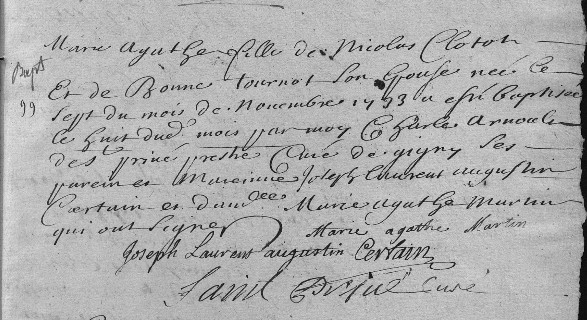 Marie Agathe fille de Nicolas Cloton
Bapt
99
Et de Bonne tournot Son Epouse née Le
Sept du mois de Novembre a esté baptisée
le huit dud. mois par moy Charle Arnoult
des prestre Curé de gigny Ses
parein et Mareinne Joseph Laurent augustin
Certain et Marie agathe Martin
qui ont Signer
Marie agathe Martin
Joseph Laurent augustin Certain
Curé